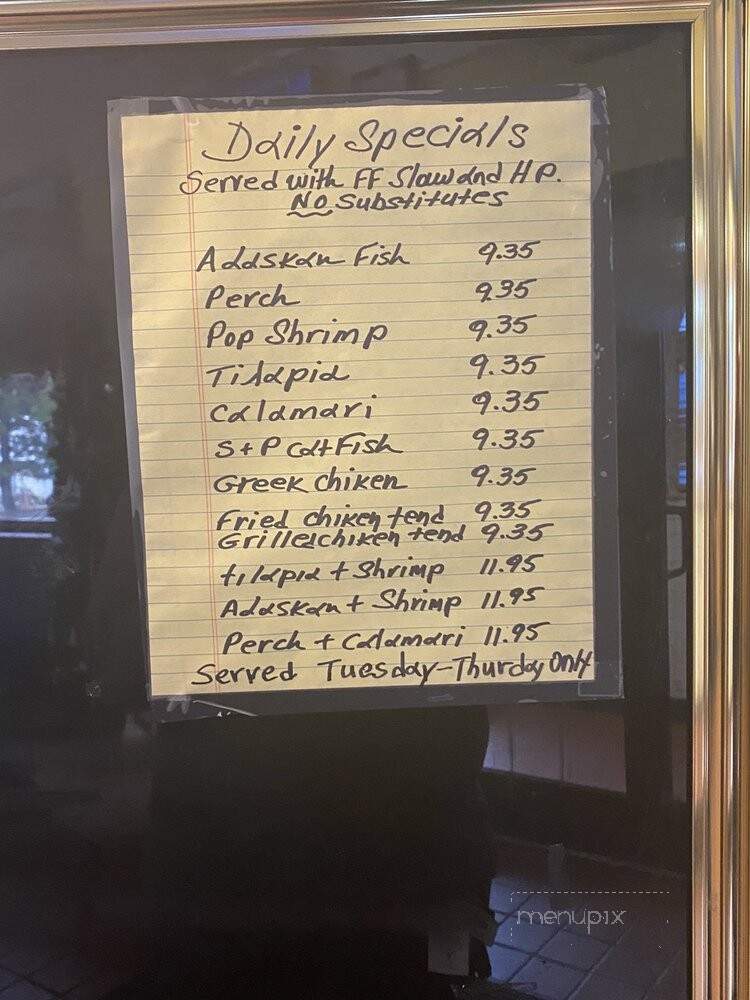 Daily Specials
Served with FF Slaw and H P.
No Substitutes
Aladskan Fish 9.35
Perch 9.35
Pop Shrimp 9.35
Tilapia 9.35
Calamari 9.35
S+P Cat Fish 9.35
Greek chiken 9.35
Fried chiken tend 9.35
Grilled chiken tend 9.35
tilapia + Shrimp 11.95
Aladskan + Shrimp 11.95
Perch + Calamari 11.95
Served Tuesday-Thurday Only
menupix